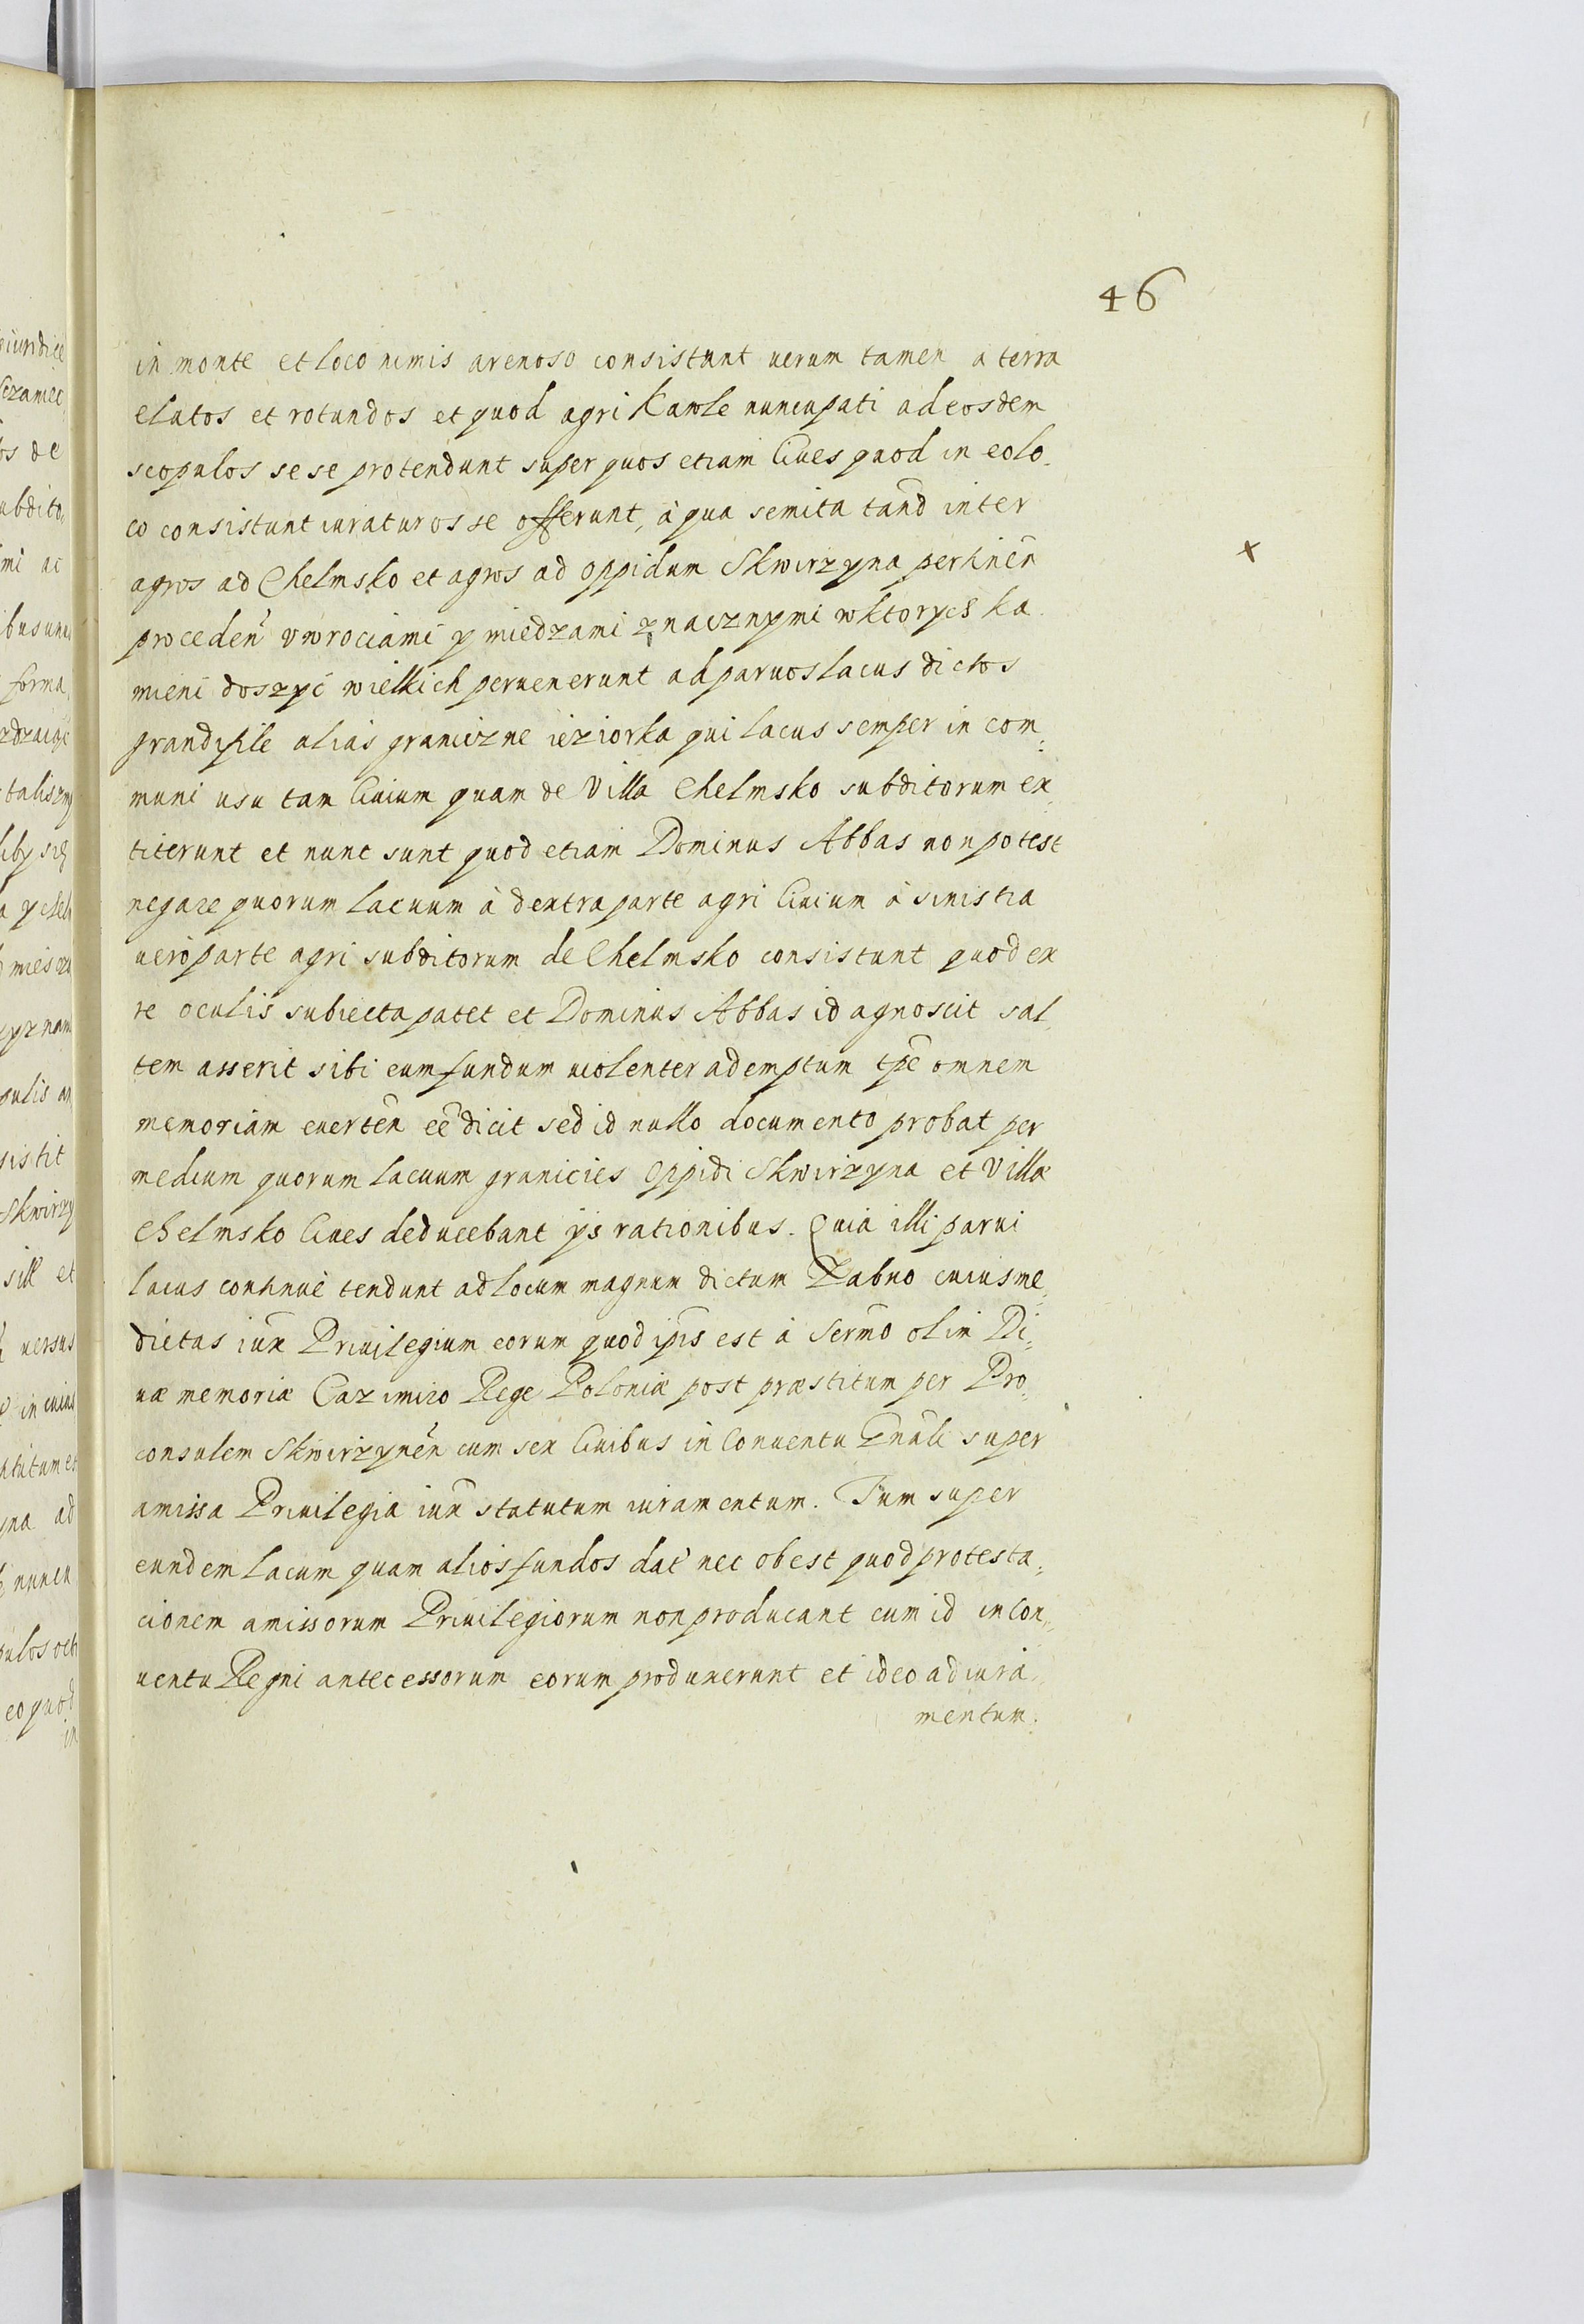 46
in monte et loco nimis arenoso consistunt uerum tamen a terra
elatos et rotundos et quod agri Kawle nuncupati ad eosdem
scopulos se se protendunt super quos etiam Ciues quod in eo lo-
co consistunt iuraturos se offerunt, à qua semita tand inter
agros ad Chelmsko et agros ad oppidum Skwirzyna pertinen
proceden vwrociami y miedzami znacznymi wktorych ka
mieni doszyć wielkich peruenerunt ad paruos lacus dictos
grandifile alias graniczne ieziorka qui lacus semper in com-
muni usu tam Ciuium quam de Villa Chelmsko subditorum ex-
titerunt et nunc sunt quod etiam Dominus Abbas non potest
negare quorum lacuum à dextra parte agri Ciuium à sinistra
uero parte agri subditorum de Chelmsko consistunt quod ex
re oculis subiecta patet et Dominus Abbas id agnoscit sal-
tem asserit sibi eum fundum uiolenter ademptum tpe omnem
memoriam euerten eẽ dicit sed id nullo documento probat per
medium quorum lacuum granicies oppidi Skwirzyna et Villæ
Chelmsko Ciues deducebant ijs rationibus. Quia illi parui
lacus continuè tendunt ad locum magnum dictum Zabno cuius me-
dietas iux Priuilegium eorum quod ipis est à Sermo olim Di-
uæ memoriæ Cazimiro Rege Poloniæ post præstitum per Pro-
consulem Skwirzynen cum sex Ciuibus in Conuentu Gnali super
amissa Priuilegia iux statutum iuramentum. Tum super
eundem lacum quam alios fundos dat nec obest quod protesta-
cionem amissorum Priuilegiorum non producant cum id in Con-
uentu Regni antecessorum eorum produxerunt et ideo ad iura-
mentum.
x